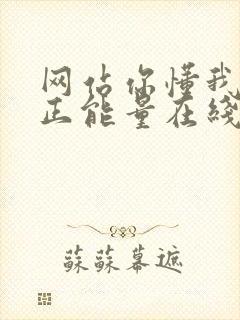 网站你懂我
正能量在线
蘇蘇幕遮